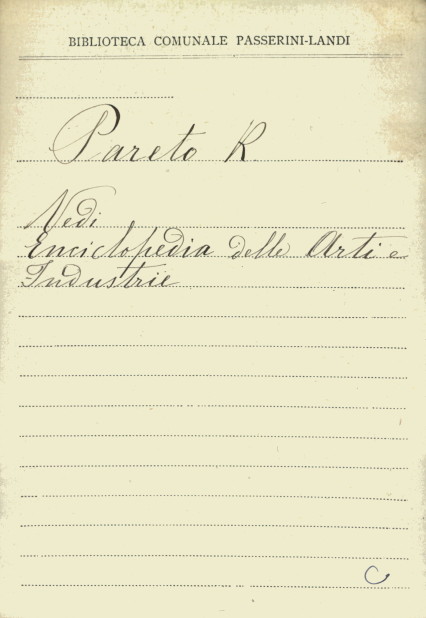 BIBLIOTECA COMUNALE PASSERINI-LANDI
Pareto R.
Vedi
Enciclopedia delle Arti e
Industrie
C